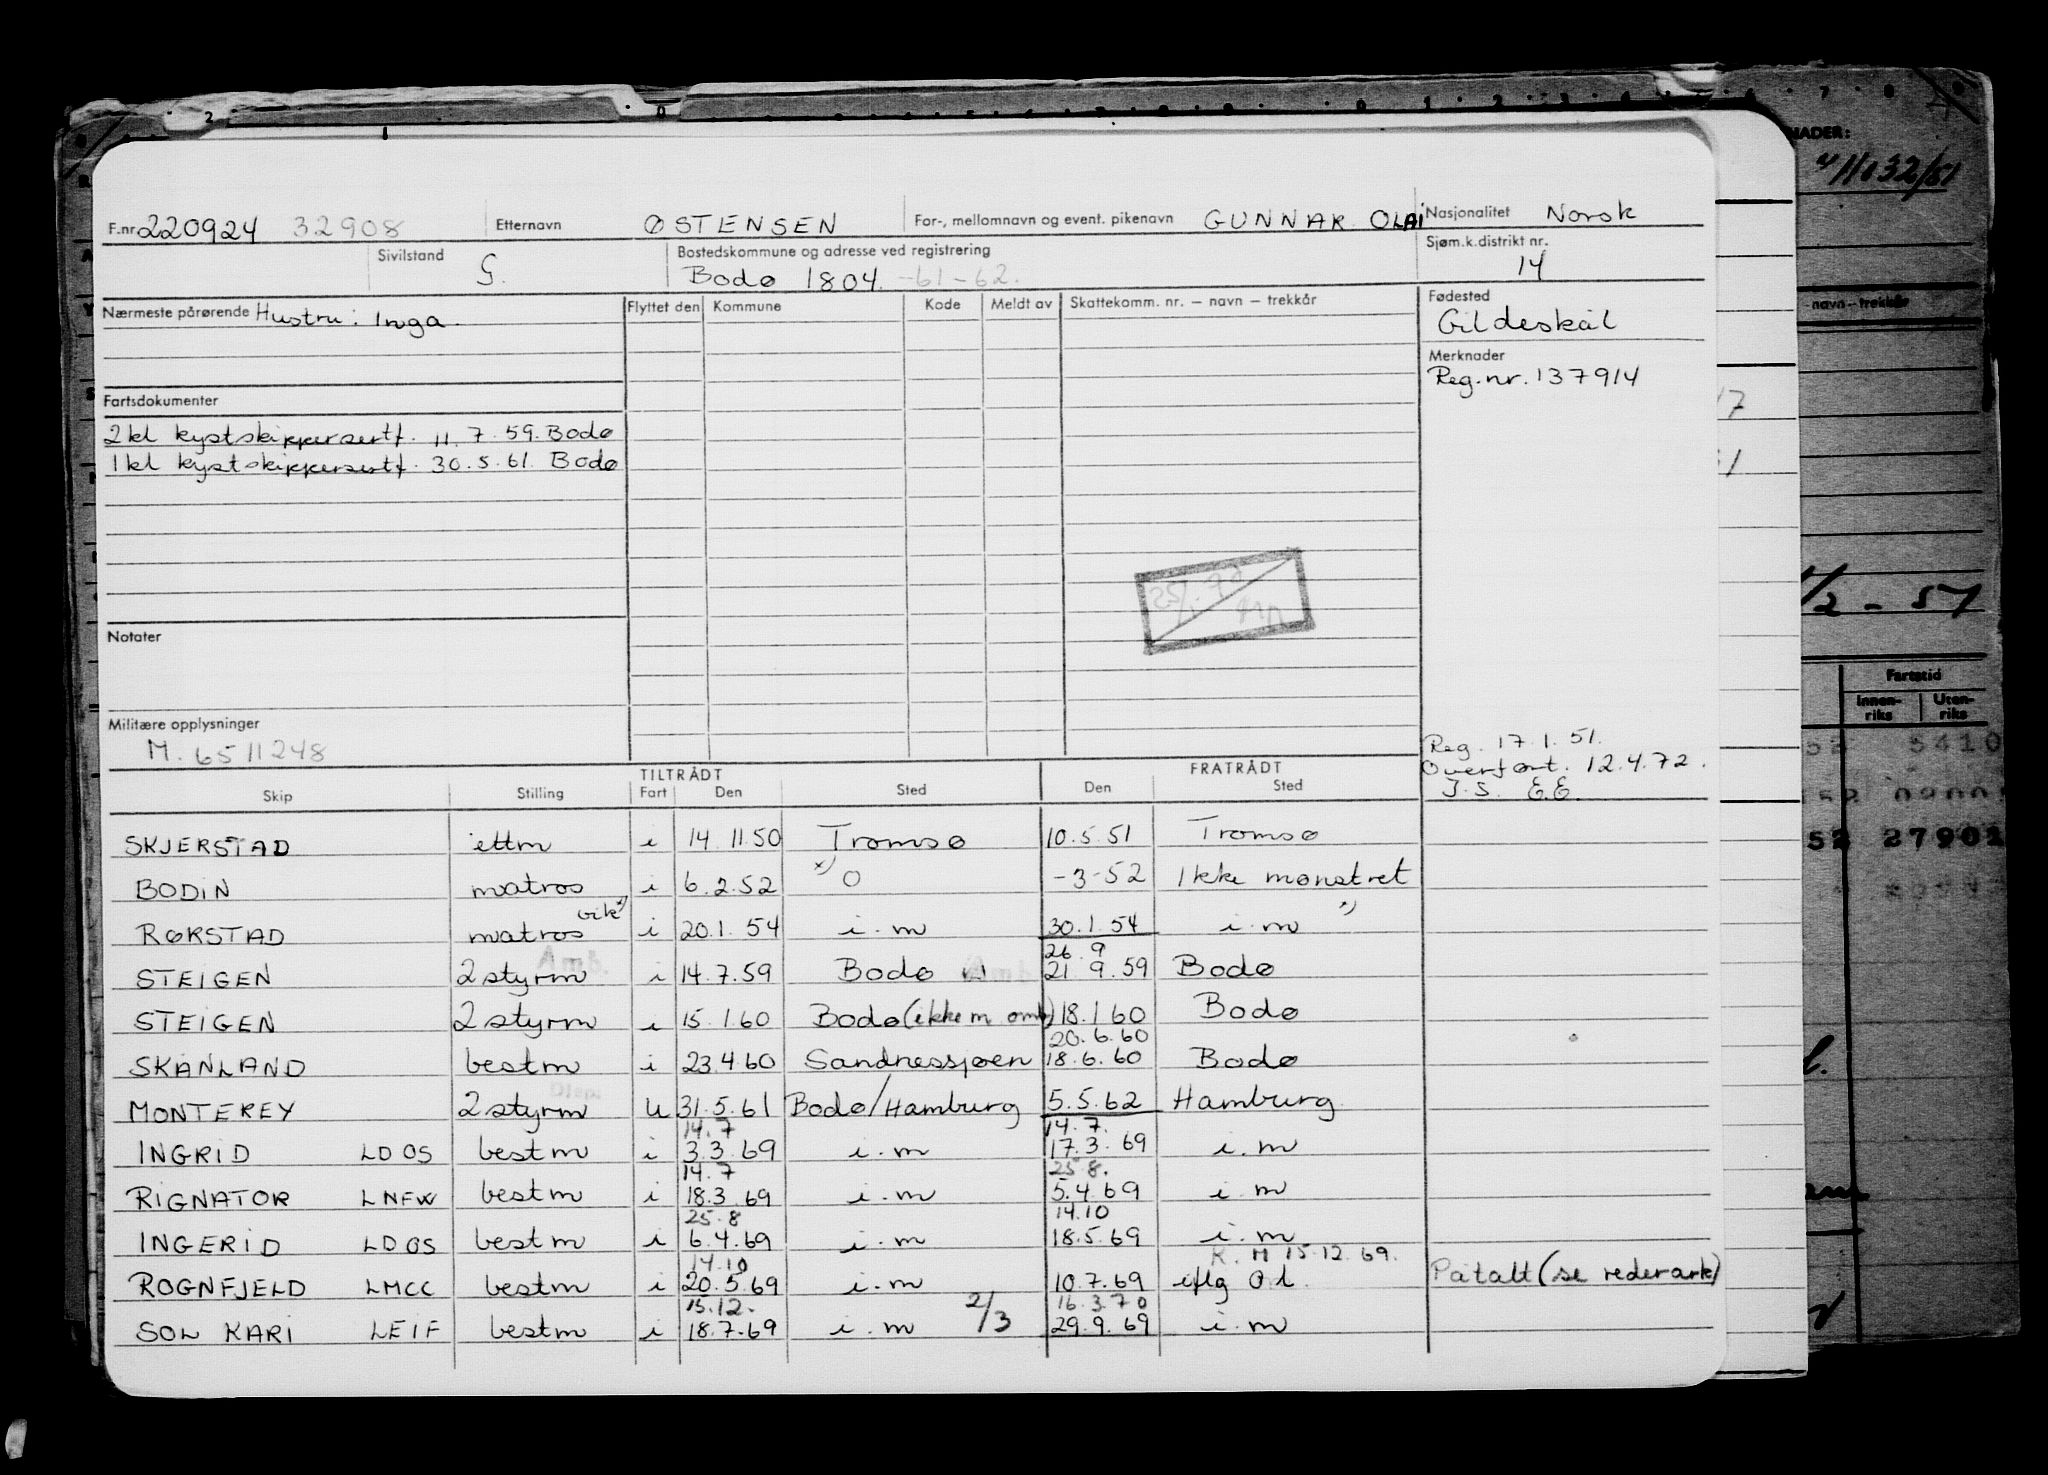 NADER:
11032/51
F.nr. 220924 32908 Etternavn ØSTENSEN For-, mellomnavn og event. pikenavn GUNNAR OLAI Nasjonalitet Norsk
Sivilstand G. Bostedskommune og adresse ved registrering Bodø 1804. -61-62. Sjøm.k.distrikt nr. 14
Nærmeste pårørende Hustru: Inga. Flyttet den Kommune Kode Meldt av Skattekomm. nr. – navn – trekkår Fødested Gildeskål
- navn - trekkår
Merknader
Reg.nr. 137914
Fartsdokumenter
2kl kystskippersertf. 11.7.59. Bodø
1kl kystskippersertf. 30.5.61. Bodø
Notater
1/2 - 51
Militære opplysninger
M. 6511248
Reg. 17.1.51.
Overført. 12.4.72.
J.S. E.E.
Fartstid
Innen-riks Uten-riks
52 5410
52 27902
TILTRÅDT FRATRÅDT
Skip Stilling Fart Den Sted Den Sted
SKJERSTAD lettm i 14.11.50 Tromsø 10.5.51 Tromsø
BODIN matros i 6.2.52 x) O -3-52 Ikke mønstret
RØRSTAD matros vik x) i 20.1.54 i.m 30.1.54 i.m x)
26.9
STEIGEN 2 styrm i 14.7.59 Bodø 21.9.59 Bodø
STEIGEN 2 styrm i 15.1.60 Bodø (ikke m omb) 18.1.60 Bodø
20.6.60
SKÅNLAND bestm i 23.4.60 Sandnessjøen 18.6.60 Bodø
MONTEREY 2 styrm u 31.5.61 Bodø/Hamburg 5.5.62 Hamburg
14.7 14.7.
INGRID LDOS bestm i 3.3.69 i.m 17.3.69 i.m
14.7 25.8.
RIGNATOR LNFW bestm i 18.3.69 i.m 5.4.69 i.m
25.8 14.10
INGERID LDOS bestm i 6.4.69 i.m 18.5.69 i.m
14.10 R.M 15.12.69.
ROGNFJELD LMCC bestm i 20.5.69 i.m 10.7.69 iflg O.l. Påtalt (se rederark)
15.12. 16.3.70
SOL KARI LEIF bestm i 18.7.69 i.m 2/3 29.9.69 i.m